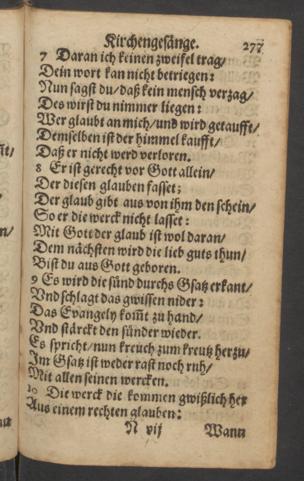 Kirchengesänge. 277
7 Daran ich keinen zweifel trag/
Dein wort kan nicht betriegen:
Nun sagst du/ daß kein mensch verzag/
Des wirst du nimmer liegen:
Wer glaubt an mich/ und wird getaufft/
Demselben ist der himmel kaufft/
Daß er nicht werd verloren.
8 Er ist gerecht vor Gott allein/
Der diesen glauben fasset;
Der glaub gibt aus von ihm den schein/
So er die werck nicht lasset:
Mit Gott der glaub ist wol daran/
Dem nächsten wird die lieb guts thun/
Bist du aus Gott geboren.
9 Es wird die sünd durchs Gsatz erkant/
Vnd schlagt das gwissen nider:
Das Evangely kom̃t zu hand/
Vnd stärckt den sünder wieder.
Es spricht/ nun kreuch zum kreutz herzu/
Im Gsatz ist weder rast noch ruh/
Mit allen seinen wercken.
10 Die werck die kommen gwißlich her
Aus einem rechten glauben:
N vij Wann